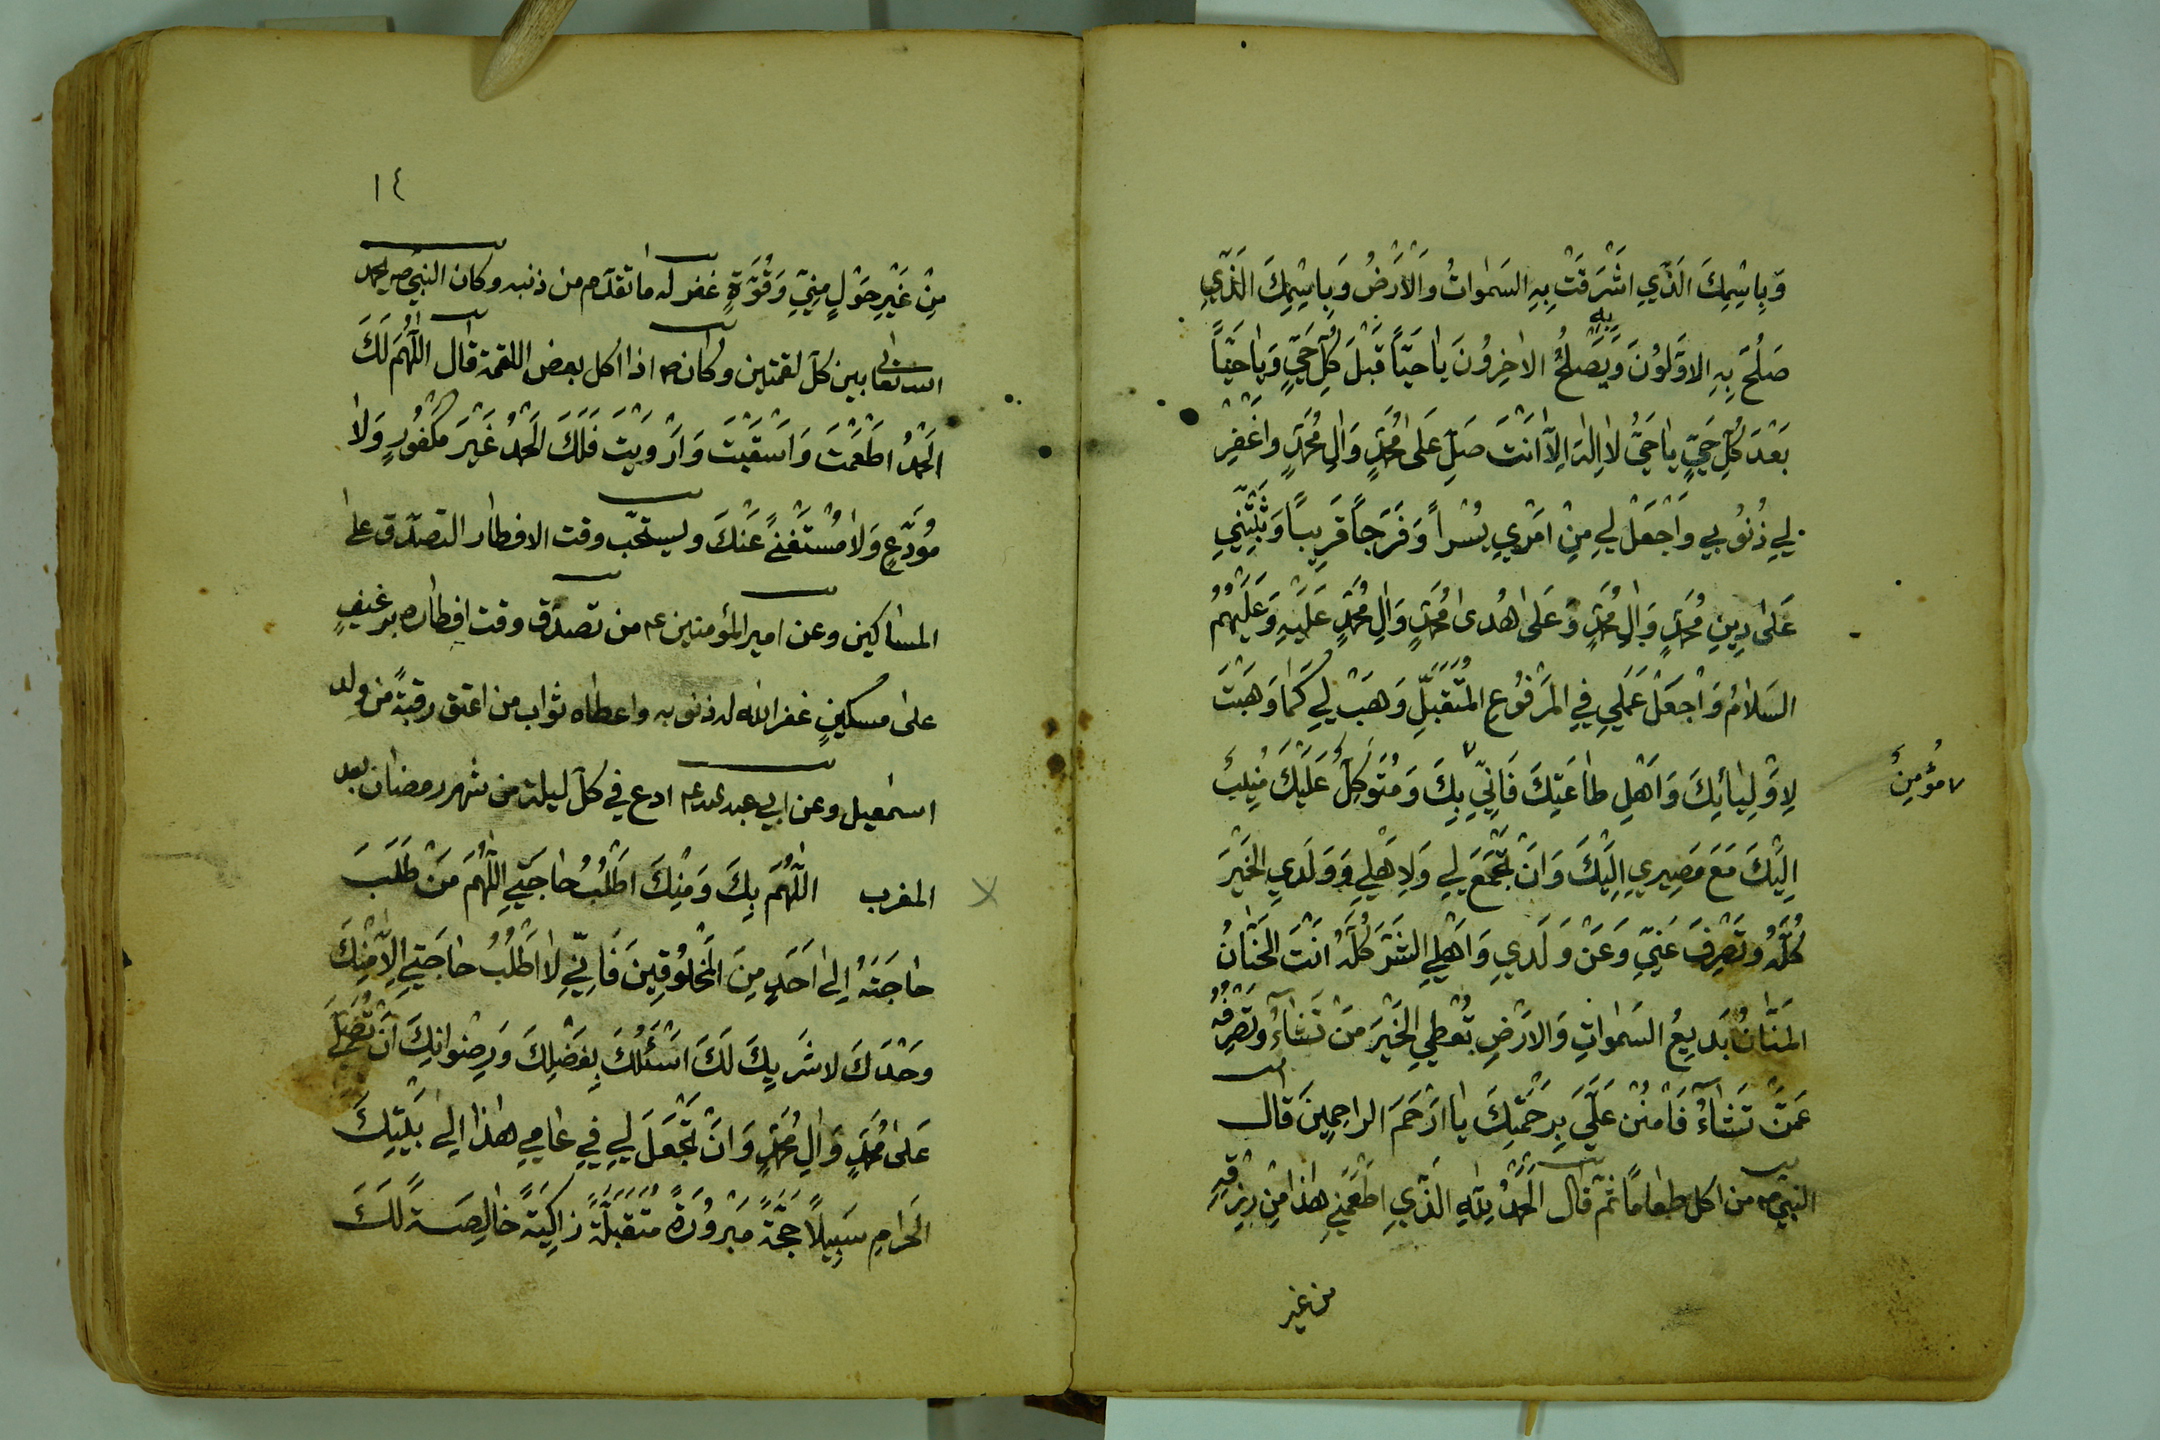 وَبِاسْمِكَ الَّذِي اَشْرَقَتْ بِهِ السَمٰواتُ وَالْاَرَضُ وَبِاسْمِكَ الَّذِي
صَلُحَ بِهِ الاوَّلوُنَ وَيَصْلُحُ بِهِ الاٰخِرُونَ يٰا حَيّاً قَبْلَ كُلِّ حَيٍّ وَيٰا حَيّاً
بَعْدَ كُلِّ حَيٍّ يٰا حَيُّ لاٰ اِلٰهَ اِلّاٰ اَنْتَ صَلِّ عَلىٰ مُحَمَّدٍ وَالِ مُحَمَّدٍ وَاغْفِرْ
لِي ذُنوُبي وَاجْعَلْ لِي مِنْ اَمْرِي يُسْراً وَفَرَجاً قَرِيباً وَثَبِّتْنِي
عَلىٰ دِينِ مُحَمَّدٍ وَالِ مُحَمَّدٍ وَعَلىٰ هُدىٰ مُحَمَّدٍ وَالِ مُحَمَّدٍ عَلَيْهِ وَعَلَيْهِمُ
السَلاٰمُ وَاجْعَلْ عَمَلِي فِي المَرْفوُعِ المُتَقَبَّلِ وَهَبْ لِي كَمٰا وَهَبْتَ
لِاَوْلِيٰائِكَ وَاَهْلِ طٰاعَتِكَ فَاِنّيِ بِكَ وَمُتَوَكِّلٌ عَلَيْكَ مُنِيبٌ
مُؤْمِنٌ
اِلَيْكَ مَعَ مَصِيرِي اِلَيْكَ وَاَنْ تَجْمَعَ لِي وَلِاَهْلِي وَوَلَدِي الخَيْرَ
كُلَّهُ وَتَصْرِفَ عَنّيِ وَعَنْ وَلَدِي وَاَهْلِي الشَرَّ كُلَّهُ اَنْتَ الحَنّٰانُ
المَنّٰانُ بَدِيعُ السَمٰواتِ وَالاَرْضِ تُعْطِي الخَيْرَ مَنْ تَشٰاءُ وَتَصْرِفُهُ
عَمَّنْ تَشٰاءُ فَامْنُنْ عَلَيَّ بِرَحْمَتِكَ يٰا اَرْحَمَ الرٰاحِمِينَ قال
النبيّ ص من اكل طعاماً ثمّ قال اَلْحَمْدُ لِلّٰهِ الَّذِي اَطْعَمَنِي هٰذا مِنْ رِزْقِهِ
من غير
١٤
مِنْ غَيْرِ حَوْلٍ مِنّيِ وَقُوَّةٍ غفر له ما تقدّم من ذنبه وكان النبيّ ص يحمد
الله تعالى بين كلّ لقمتين وكان ص اذا اكل بعض اللقمة قال اَللّٰهُمَ لَكَ
الْحَمْدُ اَطْعَمْتَ وَاَسْقَيْتَ وَاَرْوَيْتَ فَلَكَ الحَمْدُ غَيْرَ مَكْفُورٍ وَلاٰ
مُوَدَّعٍ وَلاٰ مُسْتَغْنىً عَنْكَ ويستحّب وقت الافطار التصدّق على
المساكين وعن امير المؤمنين ع من تصدّق وقت افطاره برغيفٍ
على مسكينٍ غفر الله له ذنوبه واعطاه ثواب من اعتق رقبةً من ولد
اسمعيل وعن ابي عبد الله ع ادع في كلّ ليلة من شهر رمضان بعد
المغرب اَللّٰهُمَ بِكَ وَمِنْكَ اَطْلُبُ حٰاجَتِي اَللّٰهُمَ مَنْ طَلَبَ
حٰاجَتَهُ اِلىٰ اَحَدٍ مِنَ المَخْلوُقِينَ فَاِنّيِ لاٰ اَطْلُبُ حٰاجَتِي اِلّاٰ مِنْكَ
وَحْدَكَ لا شَرِيكَ لَكَ اَسْئَلُكَ بِفَضْلِكَ وَرِضْوانِكَ اَنْ تُصَلّيَِ
عَلىٰ مُحَمَّدٍ وَالِ مُحَمَّدٍ وَاَنْ تَجْعَلَ لِي فِي عٰامِي هٰذا اِلىٰ بَيْتِكَ
الحَرامِ سَبِيلاً حَجَّةً مَبْروُرَةً مُتَقَبَّلَةً زٰاكِيَةً خٰالِصَةً لَكَ